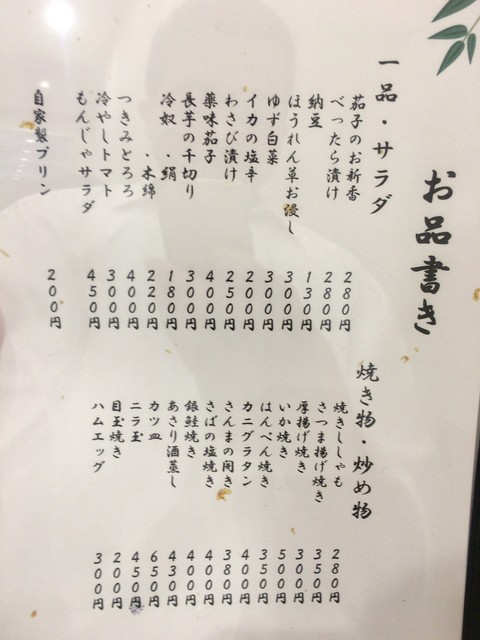 お品書き
一品・サラダ
茄子のお新香 280円
べったら漬け 280円
納豆 130円
ほうれん草お浸し 300円
ゆず白菜 300円
イカの塩辛 200円
わさび漬け 250円
薬味茄子 400円
長芋の千切り 300円
冷奴 ・絹 180円
・木綿 220円
つきみとろろ 400円
冷やしトマト 300円
もんじゃサラダ 450円
自家製プリン 200円
焼き物・炒め物
焼きししゃも 280円
さつま揚げ焼き 350円
厚揚げ焼き 300円
いか焼き 500円
はんぺん焼き 350円
カニグラタン 400円
さんまの開き 380円
さばの塩焼き 400円
銀鮭焼き 400円
あさり酒蒸し 430円
カツ皿 650円
ニラ玉 450円
目玉焼き 200円
ハムエッグ 300円